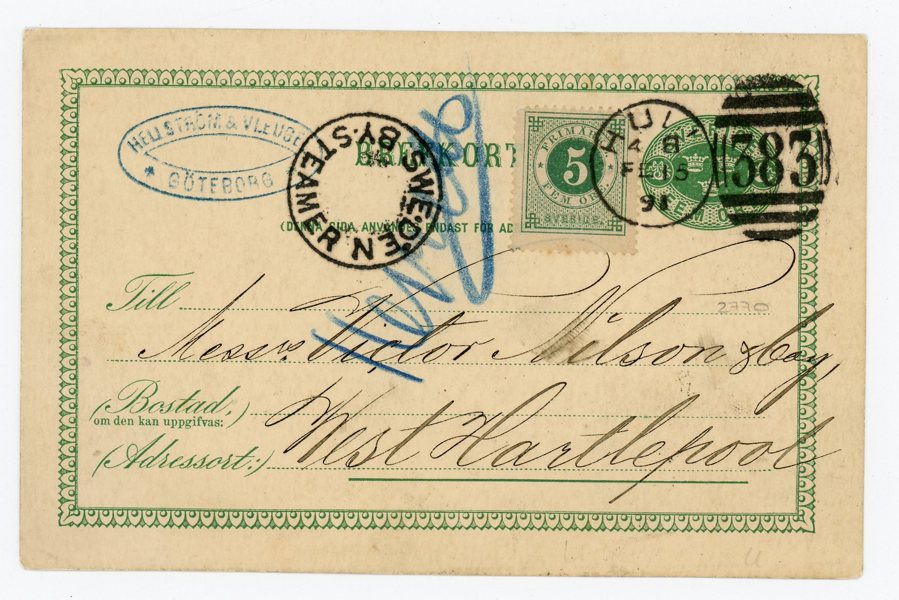 HELLSTRÖM & VLEUGE
* GÖTEBORG *
BREFKORT
SWEDEN BY STEAMER
FRIMÄRKE
5
FEM ÖRE.
SVERIGE.
HULL
A 8
FE 15
91
383
FEM ÖRE
(DENNA SIDA ANVÄNDES ENDAST FÖR AD
2770
Till
Messrs Victor Nilson & Coy,
(Bostad,)
om den kan uppgifvas:
West Hartlepool
(Adressort:)